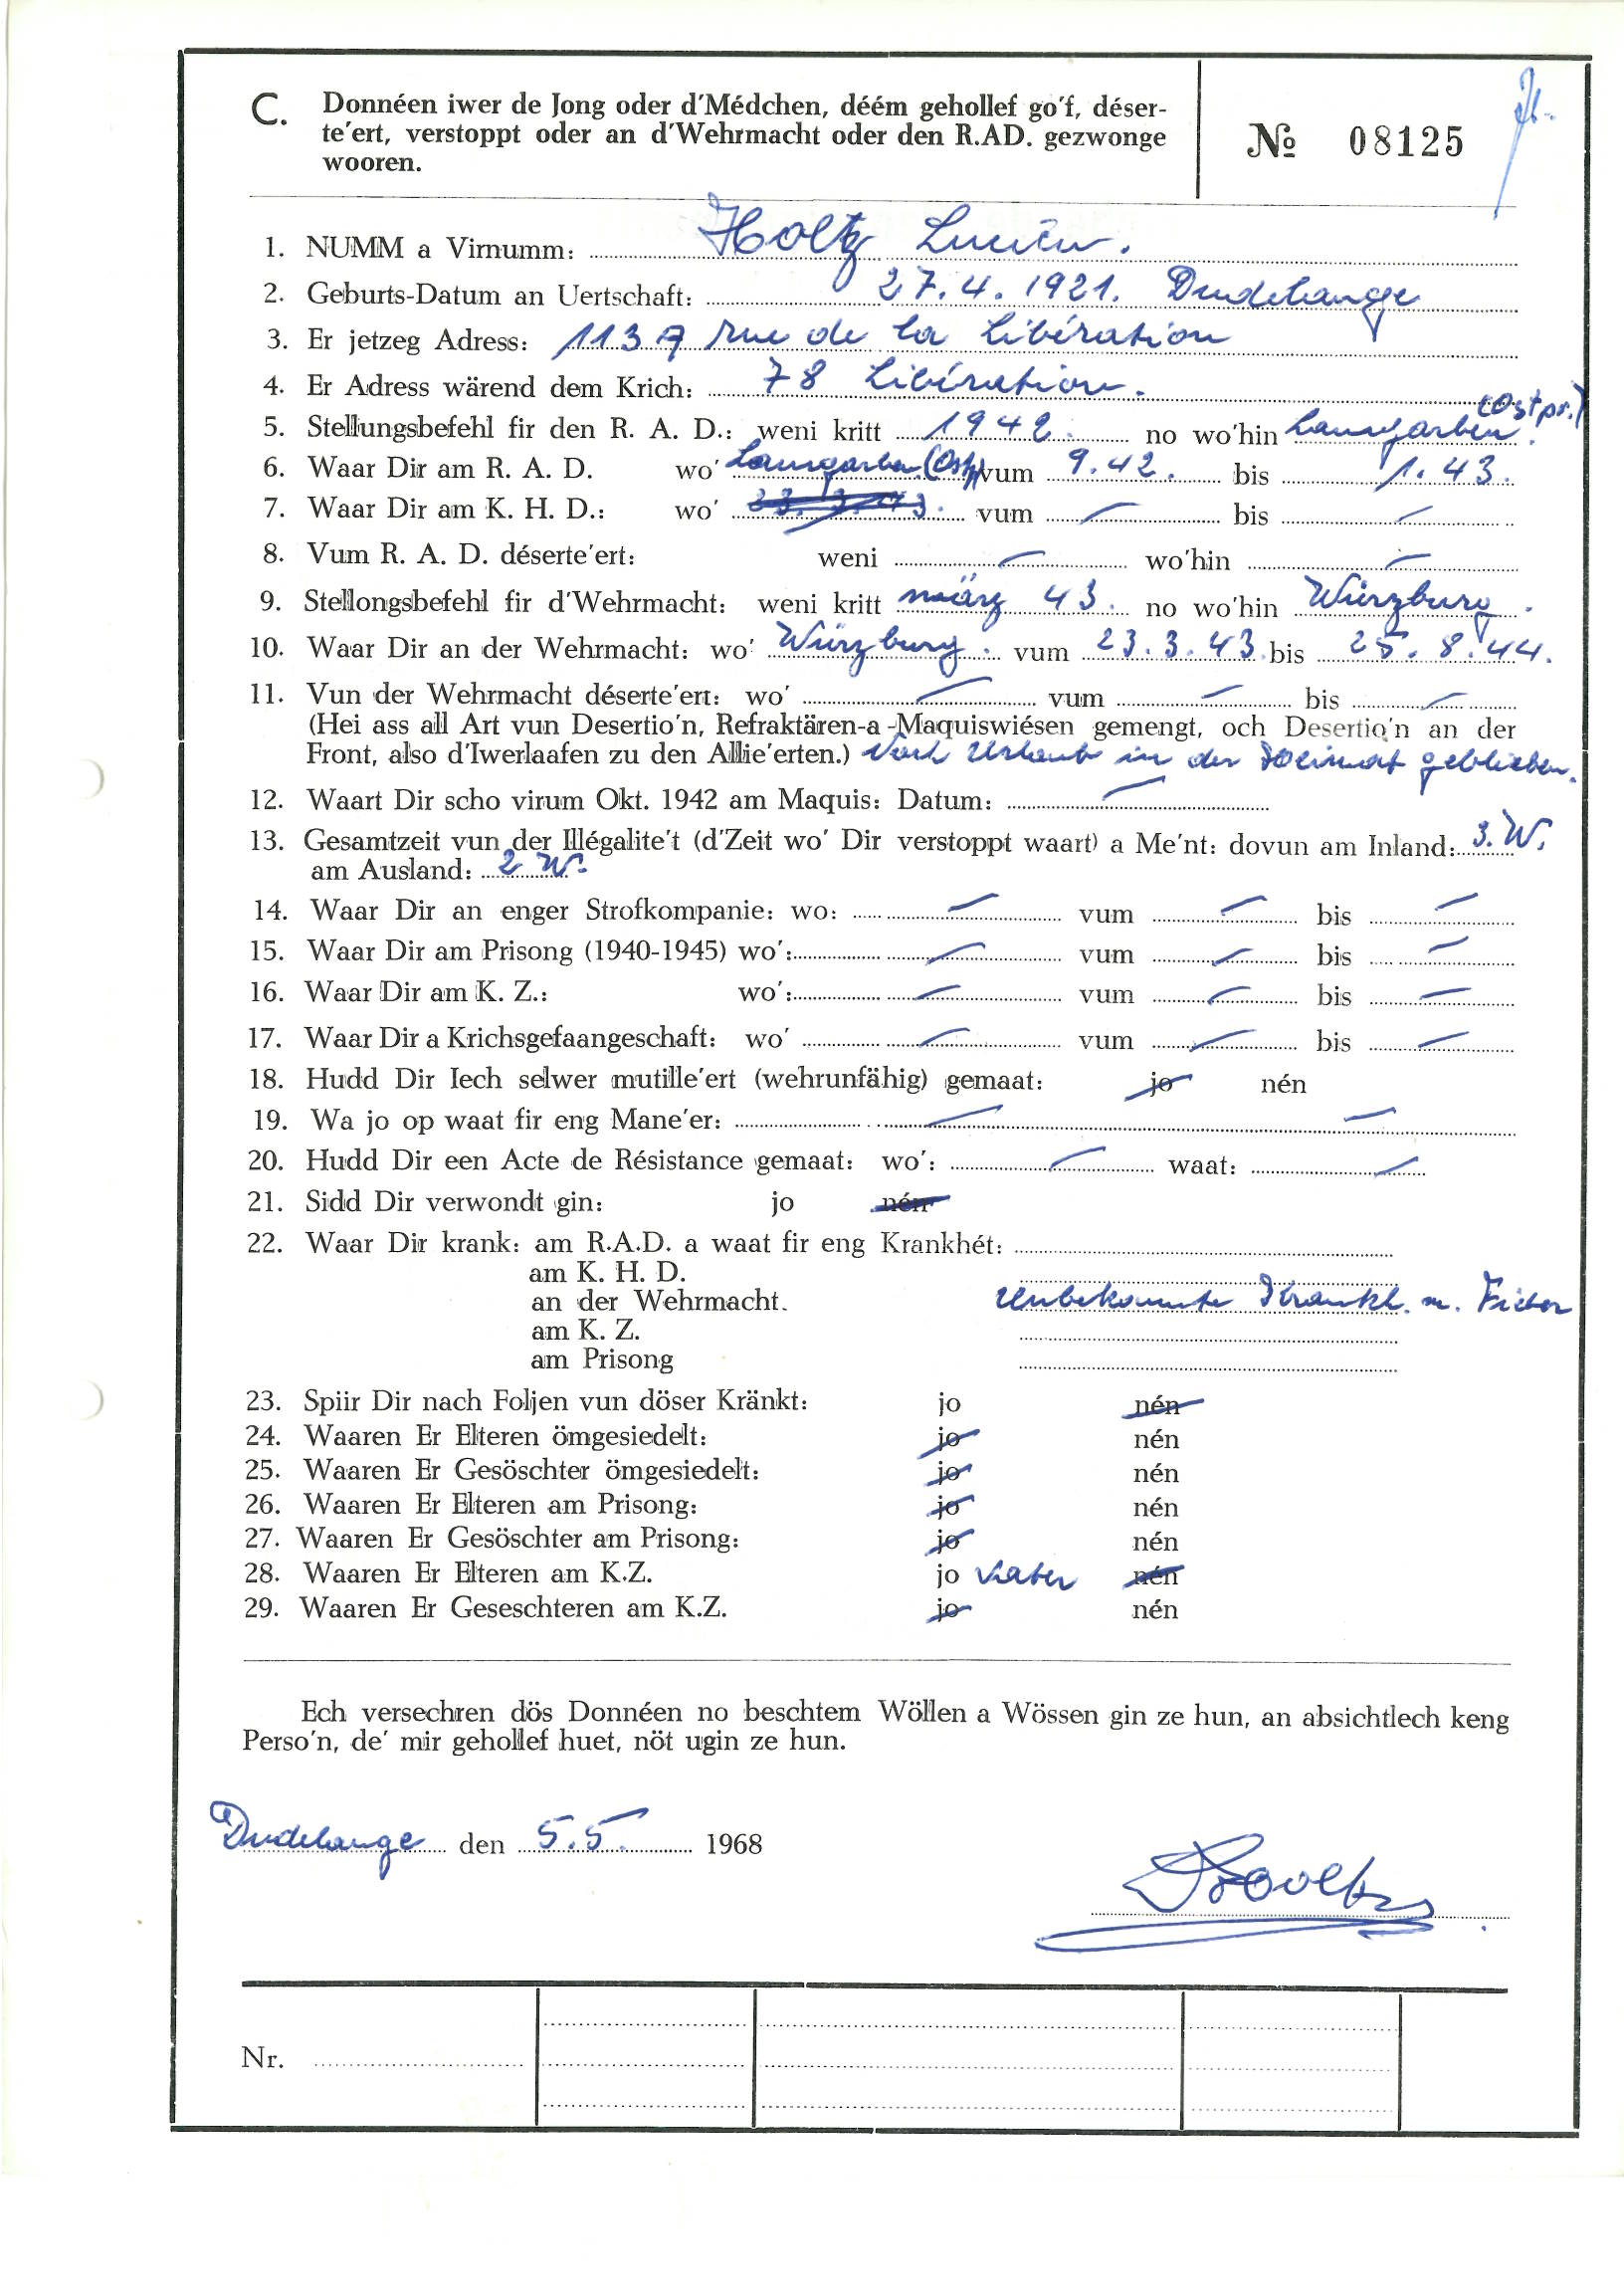 C. Donnéen iwer de Jong oder d'Médchen, déém gehollef go'f, déser-
te'ert, verstoppt oder an d'Wehrmacht oder den R.AD. gezwonge
wooren.
№ 08125
1. NUMM a Virnumm: Holtz Lucien.
2. Geburts-Datum an Uertschaft: 27.4.1921. Dudelange
3. Er jetzeg Adress: 113 A rue de la Libération
4. Er Adress wärend dem Krich: 78 Libération.
5. Stellungsbefehl fir den R. A. D.: weni kritt 1942. no wo'hin Langarben (Ostpr.)
6. Waar Dir am R. A. D. wo' Langarben (Ostp) vum 9.42. bis 1.43.
7. Waar Dir am K. H. D.: wo' 23.3.43. vum — bis —
8. Vum R. A. D. déserte'ert: weni — wo'hin —
9. Stellongsbefehl fir d'Wehrmacht: weni kritt märz 43. no wo'hin Würzburg.
10. Waar Dir an der Wehrmacht: wo' Würzburg. vum 23.3.43. bis 25.8.44.
11. Vun der Wehrmacht déserte'ert: wo' — vum — bis —
(Hei ass all Art vun Desertio'n, Refraktären-a-Maquiswiésen gemengt, och Desertio'n an der
Front, also d'Iwerlaafen zu den Allie'erten.) Nach Urlaub in der Heimat geblieben.
12. Waart Dir scho virum Okt. 1942 am Maquis: Datum: —
13. Gesamtzeit vun der Illégalite't (d'Zeit wo' Dir verstoppt waart) a Me'nt: dovun am Inland: 3. W.
am Ausland: 2 W.
14. Waar Dir an enger Strofkompanie: wo: — vum — bis —
15. Waar Dir am Prisong (1940-1945) wo': — vum — bis —
16. Waar Dir am K. Z.: wo': — vum — bis —
17. Waar Dir a Krichsgefaangeschaft: wo' — vum — bis —
18. Hudd Dir Iech selwer mutille'ert (wehrunfähig) gemaat: jo nén
19. Wa jo op waat fir eng Mane'er: — —
20. Hudd Dir een Acte de Résistance gemaat: wo': — waat: —
21. Sidd Dir verwondt gin: jo nén
22. Waar Dir krank: am R.A.D. a waat fir eng Krankhét:
am K. H. D.
an der Wehrmacht. Unbekannte Krankh. m. Fieber
am K. Z.
am Prisong
23. Spiir Dir nach Foljen vun döser Kränkt: jo nén
24. Waaren Er Elteren ömgesiedelt: jo nén
25. Waaren Er Gesöschter ömgesiedelt: jo nén
26. Waaren Er Elteren am Prisong: jo nén
27. Waaren Er Gesöschter am Prisong: jo nén
28. Waaren Er Elteren am K.Z. jo Vater nén
29. Waaren Er Geseschteren am K.Z. jo nén
Ech versechren dös Donnéen no beschtem Wöllen a Wössen gin ze hun, an absichtlech keng
Perso'n, de' mir gehollef huet, nöt ugin ze hun.
Dudelange den 5.5. 1968
Nr.